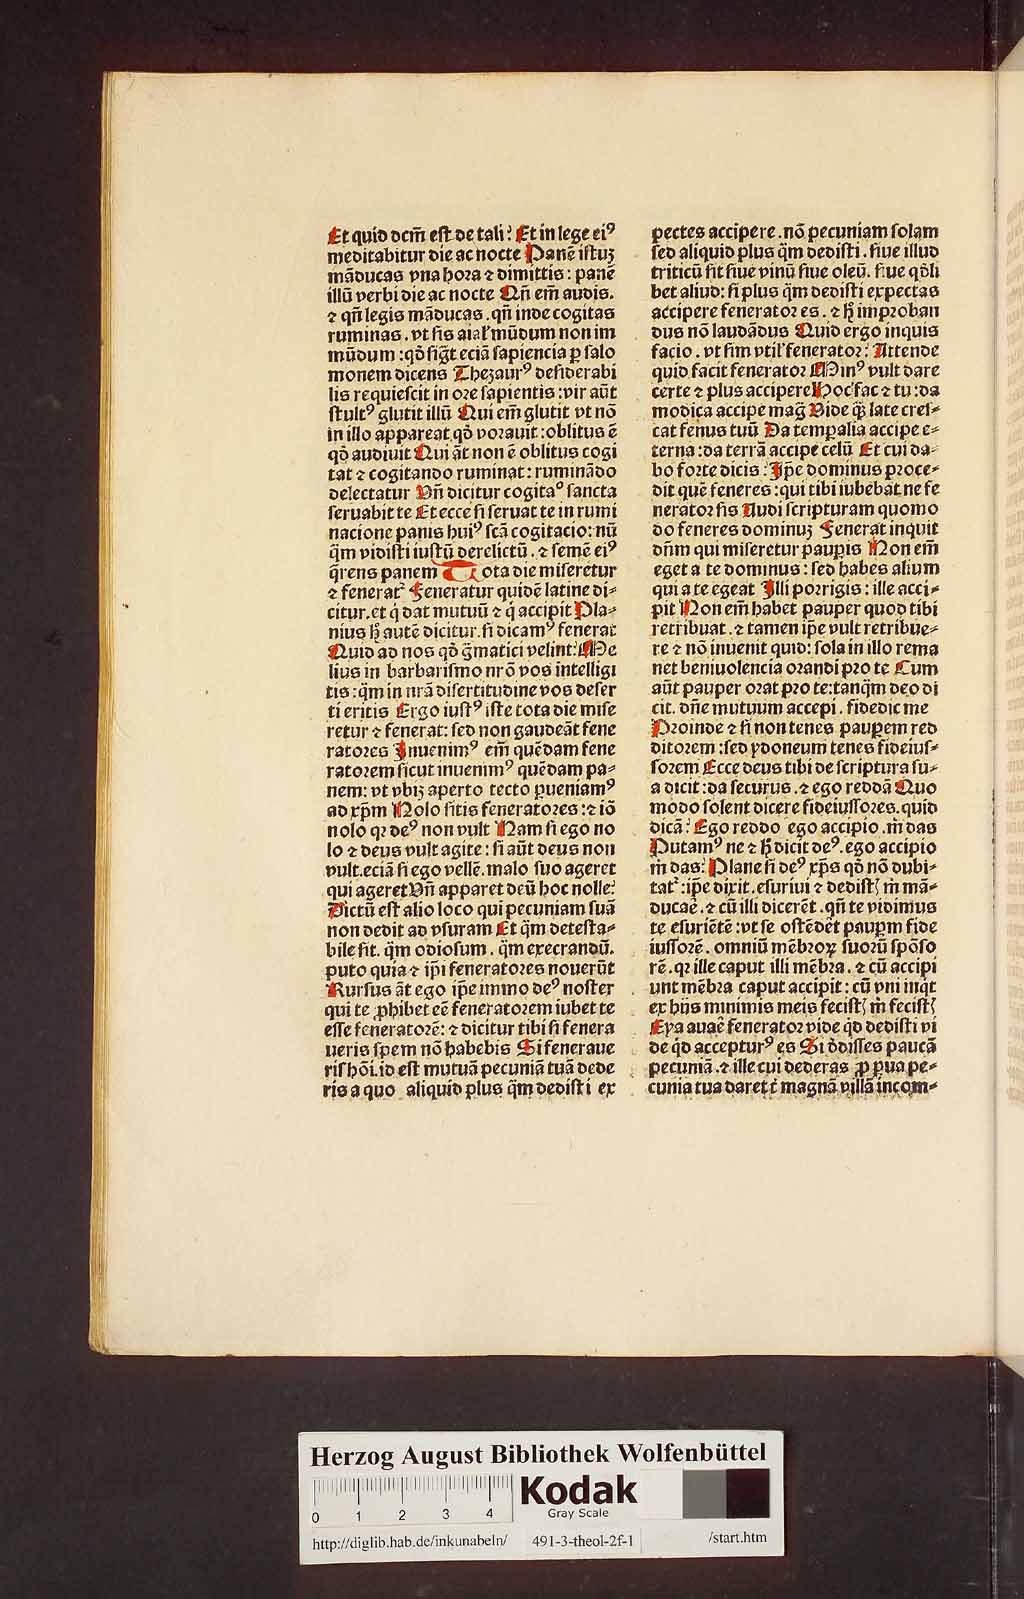 Et quid dcm̄ est de tali? Et in lege eiꝰ
meditabitur die ac nocte Panē istuʒ
māducas vna hora ⁊ dimittis : panē
illū verbi die ac nocte Qn̄ em̄ audis.
⁊ qn̄ legis māducas . qn̄ inde cogitas
ruminas . vt sis aiał mūdum non im
mūdum : qd̄ sigt̄ eciā sapiencia ꝑ salo
monem dicens Thezaurꝰ desiderabi
lis requiescit in ore sapientis : vir aūt
stultꝰ glutit illū Qui em̄ glutit vt nō
in illo appareat qd̄ vorauit : oblitus ē
qd̄ audiuit Qui āt non ē oblitus cogi
tat ⁊ cogitando ruminat : rumināndo
delectatur Vn̄ dicitur cogitaº sancta
seruabit te Et ecce si seruat te in rumi
nacione panis huiꝰ scā cogitacio : nū
qm̄ vidisti iustū derelictū . ⁊ semē eiꝰ
qr̄ens panem Tota die miseretur
⁊ fenerat᷑ Feneratur quidē latine di⸗
citur. et q̇ dat mutuū ⁊ q̇ accipit Pla⸗
nius hꝫ autē dicitur. si dicamꝰ fenerat
Quid ad nos qd̄ gm̄atici velint? Me
lius in barbarismo nr̄o vos intelligi
tis : qm̄ in nrā disertitudine vos deser
ti eritis Ergo iustꝰ iste tota die mise
retur ⁊ fenerat : sed non gaudeāt fene
ratores Inuenimꝰ em̄ quēdam fene
ratorem sicut inuenimꝰ quēdam pa⸗
nem : vt vbiʒ aperto tecto ꝑueniamꝰ
ad xp̄m Nolo sitis feneratores : ⁊ iō
nolo qꝛ deꝰ non vult Nam si ego no
lo ⁊ deus vult agite : si aūt deus non
vult. eciā si ego vellē. malo suo ageret
qui ageret Vn̄ apparet deū hoc nolle?
Dictū est alio loco qui pecuniam suā
non dedit ad vsuram Et qm̄ detesta⸗
bile sit. qm̄ odiosum . qm̄ execrandū.
puto quia ⁊ ip̄i feneratores nouerūt
Rursus āt ego ip̄e immo deꝰ noster
qui te ꝓhibet eē feneratorem iubet te
esse feneratorē : ⁊ dicitur tibi si fenera
ueris spem nō habebis Si feneraue
ris hōi. id est mutuā pecuniā tuā dede
ris a quo aliquid plus qm̄ dedisti ex
pectes accipere . nō pecuniam solam
sed aliquid plus qm̄ dedisti . siue illud
triticū sit siue vinū siue oleū. siue qd̄li
bet aliud : si plus qm̄ dedisti expectas
accipere fenerator es . ⁊ hꝫ improban
dus nō laudādus Quid ergo inquis
facio . vt sim vtił fenerator? Attende
quid facit fenerator Minꝰ vult dare
certe ⁊ plus accipere Hoc fac ⁊ tu : da
modica accipe magꝫ Vide qꝫ late cres⸗
cat fenus tuū Da temꝑalia accipe e⸗
terna : da terrā accipe celū Et cui da⸗
bo forte dicis? Ip̄e dominus proce⸗
dit quē feneres : qui tibi iubebat ne fe
nerator sis Audi scripturam quomo
do feneres dominuʒ Fenerat inquit
dn̄m qui miseretur pauꝑis Non em̄
eget a te dominus : sed habes alium
qui a te egeat Illi porrigis : ille acci⸗
pit Non em̄ habet pauper quod tibi
retribuat . ⁊ tamen ip̄e vult retribue⸗
re ⁊ nō inuenit quid : sola in illo rema
net beniuolencia orandi pro te Cum
aūt pauper orat pro te : tanqm̄ deo di
cit. dn̄e mutuum accepi . fidedic me
Proinde ⁊ si non tenes pauꝑem red
ditorem : sed ydoneum tenes fideius⸗
sorem Ecce deus tibi de scriptura su⸗
a dicit : da securus . ⁊ ego reddā Quo
modo solent dicere fideiussores. quid
dicā? Ego reddo ego accipio . m̄ das
Putamꝰ ne ⁊ hꝫ dicit deꝰ . ego accipio
m̄ das? Plane si deꝰ xp̄s qd̄ nō dubi⸗
tat᷑ : ip̄e dixit. esuriui ⁊ dedistꝭ m̄ mā⸗
ducaē. ⁊ cū illi dicerēt . qn̄ te vidimus
te esuriētē : vt se ostēdēt pauꝑm fide
iussorē . omniū mēbroꝝ suorū spōso
rē . qꝛ ille caput illi mēbra . ⁊ cū accipi
unt mēbra caput accipit : cū vni inqt
ex hijs minimis meis fecistꝭ m̄ fecistꝭ
Eya auaē fenerator vide qd̄ dedisti vi
de qd̄ accepturꝰ es Si dedisses paucā
pecuniā . ⁊ ille cui dederas ꝓ ꝑua pe⸗
cunia tua daret t̄ magnā villā incom⸗
Herzog August Bibliothek Wolfenbüttel
0 1 2 3 4
Kodak
Gray Scale
http://diglib.hab.de/inkunabeln/ 491-3-theol-2f-1 /start.htm